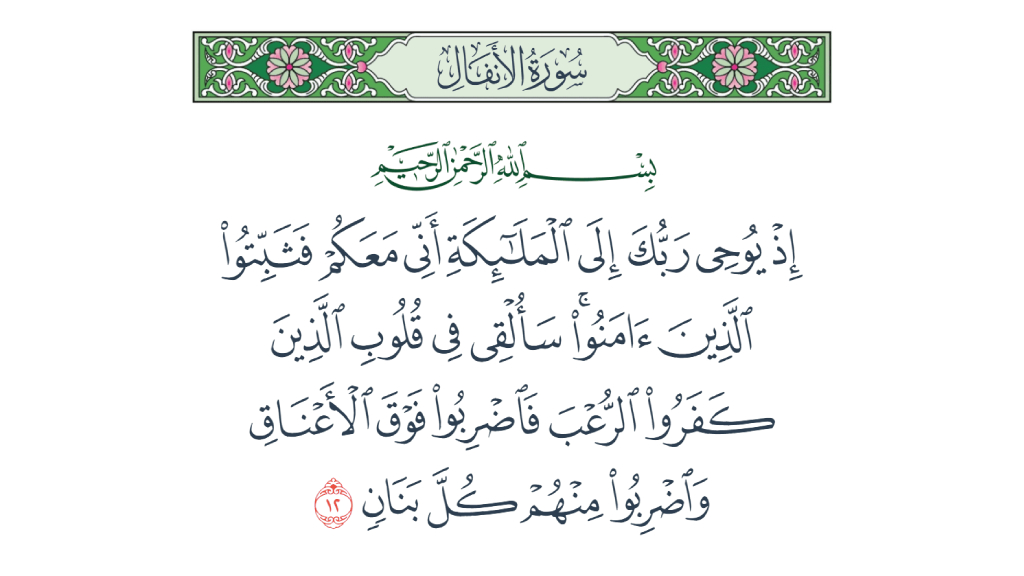 سُورَةُ الأَنفَالِ
بِسْمِ ٱللَّهِ ٱلرَّحْمَٰنِ ٱلرَّحِيمِ
إِذْ يُوحِى رَبُّكَ إِلَى ٱلْمَلَـٰٓئِكَةِ أَنِّى مَعَكُمْ فَثَبِّتُوا۟
ٱلَّذِينَ ءَامَنُوا۟ ۚ سَأُلْقِى فِى قُلُوبِ ٱلَّذِينَ
كَفَرُوا۟ ٱلرُّعْبَ فَٱضْرِبُوا۟ فَوْقَ ٱلْأَعْنَاقِ
وَٱضْرِبُوا۟ مِنْهُمْ كُلَّ بَنَانٍ ١٢